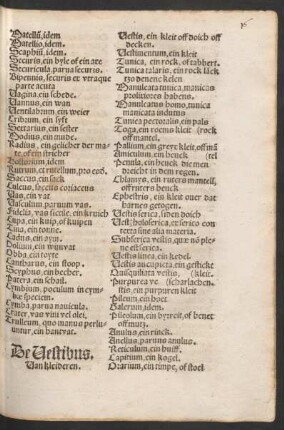 Satellū, idem
Satellio, idem.
Scaphiū, idem.
Securis, ein byle of ein axe
Securicula, parua securis.
Bipennis, securis ex vtraque
parte acuta
Vagina, ein schede.
Vannus, ein wan
Ventilabrum, ein weier
Cribum, ein syft
Sextarius, ein sester
Modius, ein mude.
Radius, ein gelicher der ma
te of ein stricher
Hostorium, idem
Rutrum, et rutellum, pro eod̄.
Saccus, ein sack
Culeus, saccus coriaceus
Vas, ein vat
Vasculum paruum vas.
Fidelia, vas fictile, ein kruich
Cupa, ein kuip, of kuipen
Tina, ein tonne.
Cadus, ein aym.
Dolium, ein
Obba, ein toyte
Cantharus, ein stoop.
Scyphus, ein becher.
Patera, ein schail.
Cymbium, poculum in cym-
be speciem.
Cymba, parua nauicula.
Crater, van vini vel olei,
Trulleum, quo manus perlu-
untur, ein hantvat.
De Vestibus.
Van kleideren.
Vestis, ein kleit off doich off
decken.
Vestimentum, ein kleit
Tunica, ein rock, of tabbert.
Tunica talaris, ein rock läck
tzo denenc keien
Manuleata tunica, manicas
prolixiores habens.
Manuleatus homo, tunica
manicata indutus
Tunica pectoralis, ein pals
Toga, ein roemo kleit (rock
off mantel.
Pallium, ein greex kleit off mā
Amiculum, ein heuck (tel
Penula, ein heuck die men
dreicht in dem regen.
Chlamys, ein ruters mantell,
off ruters heuck
Ephestris, ein kleit ouer dat
harnes getogen.
Vestis serica, siden doich
Vest⁹ holoserica, ex serico con
texta sine alia materia.
Subserica vestis, quæ nō ple
ne est serica.
Vestis linea, ein kedel.
Vestis aucupicta, ein gestickt
Quisquiliata vestis, (kleit.
Purpurea vel (scharlachen.
stis, ein purpuren kleit
Pileum, ein hoet
Galerum, idem.
Pileolum, ein bytreit, of benet
off mutz.
Anulus, ein rinck.
Anellus, paruus anulus.
Reticulum, ein huiff.
Capitium, ein kogel.
Orarium, ein timpe, of stoel